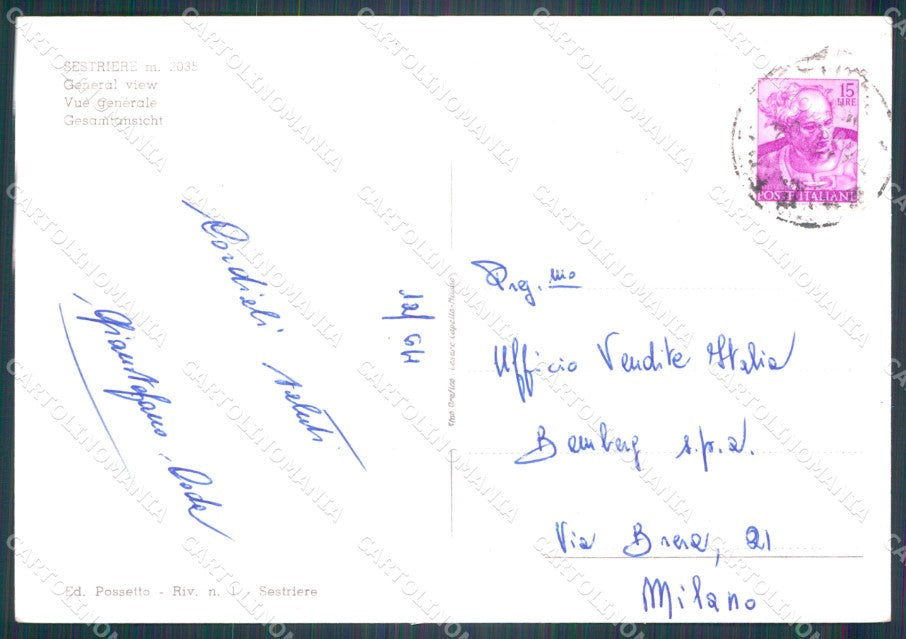 SESTRIERE m. 2035
General view
Vue générale
Gesamtansicht
15
LIRE
POSTE ITALIANE
Cordiali saluti
Gianstefano
12/64
Preg.mo
Ufficio Vendite Italia
Bemberg s.p.a.
Via Brera, 21
Milano
Ed. Possetto - Riv. n. 1 - Sestriere
CARTOLINOMANIA